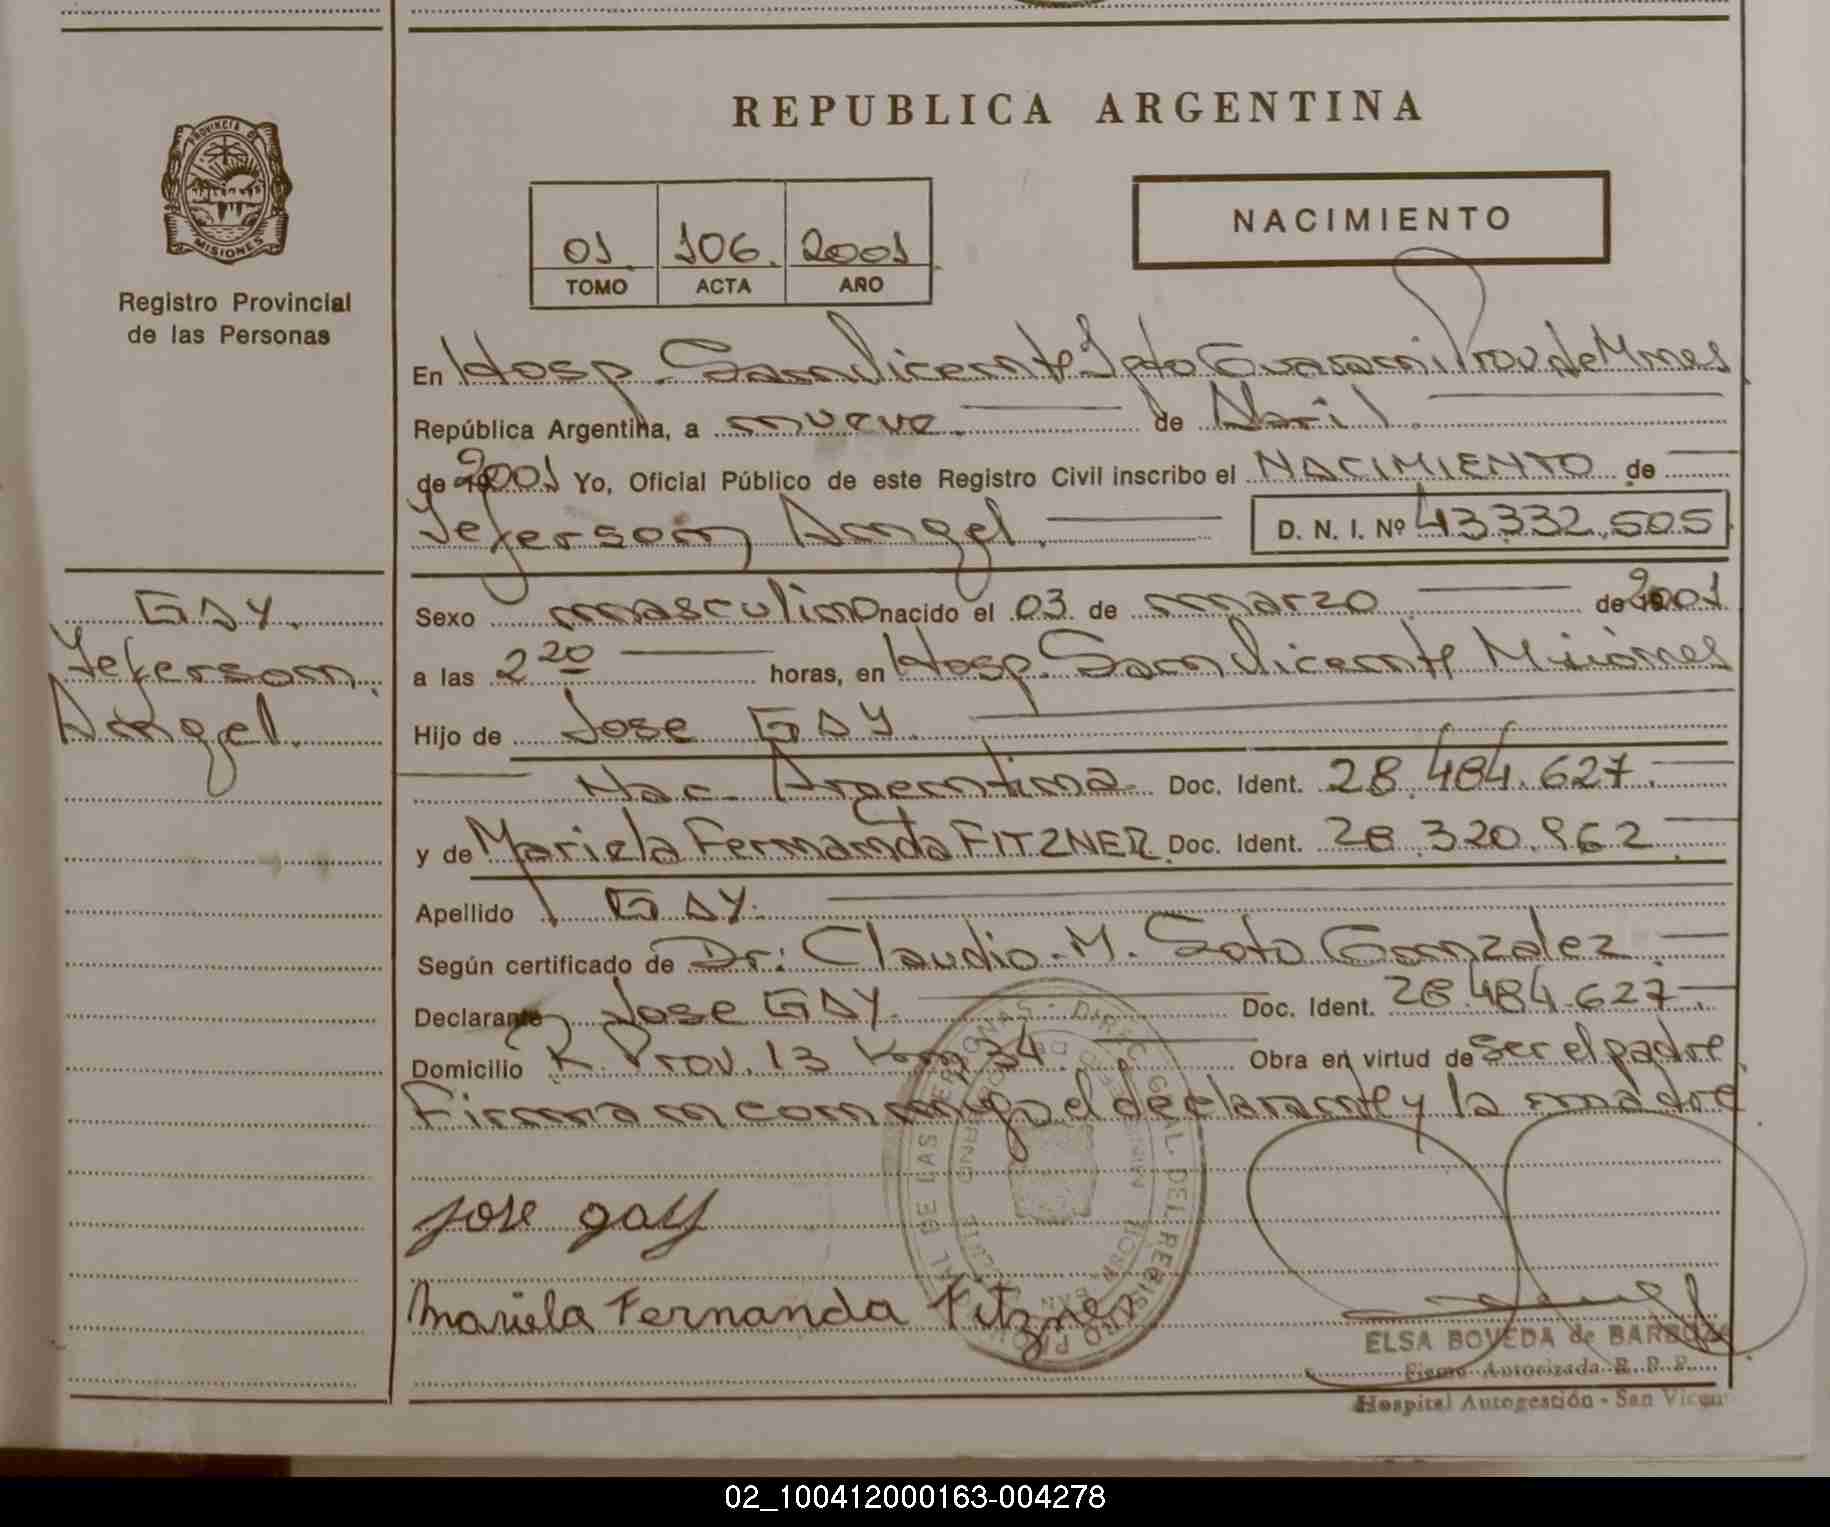 REPUBLICA ARGENTINA
PROVINCIA DE
MISIONES
Registro Provincial
de las Personas
01 106. 2001
TOMO ACTA AÑO
NACIMIENTO
En Hosp. San Vicente Dpto Guarani Prov de Mnes
República Argentina, a nueve. de Abril.
de 2001 Yo, Oficial Público de este Registro Civil inscribo el NACIMIENTO de
Jeferson Angel. D. N. I. Nº 43.332.505
GAY.
Jeferson
Angel.
Sexo masculino nacido el 03 de marzo de 2001
a las 2 20 horas, en Hosp. San Vicente Misiones
Hijo de Jose GAY.
Nac. Argentina. Doc. Ident. 28.484.627.
y de Mariela Fernanda FITZNER. Doc. Ident. 28.320.962.
Apellido GAY.
Según certificado de Dr: Claudio. M. Soto Gonzalez.
Declarante Jose GAY. Doc. Ident. 28.484.627.
Domicilio R. Prov. 13 Km 34. Obra en virtud de ser el padre.
Firman conmigo el declarante y la madre
jose gay
Mariela Fernanda Fitzner
ELSA BOVEDA de BARBOZA
Firma Autorizada R. P. P.
Hospital Autogestión - San Vicen
02_100412000163-004278